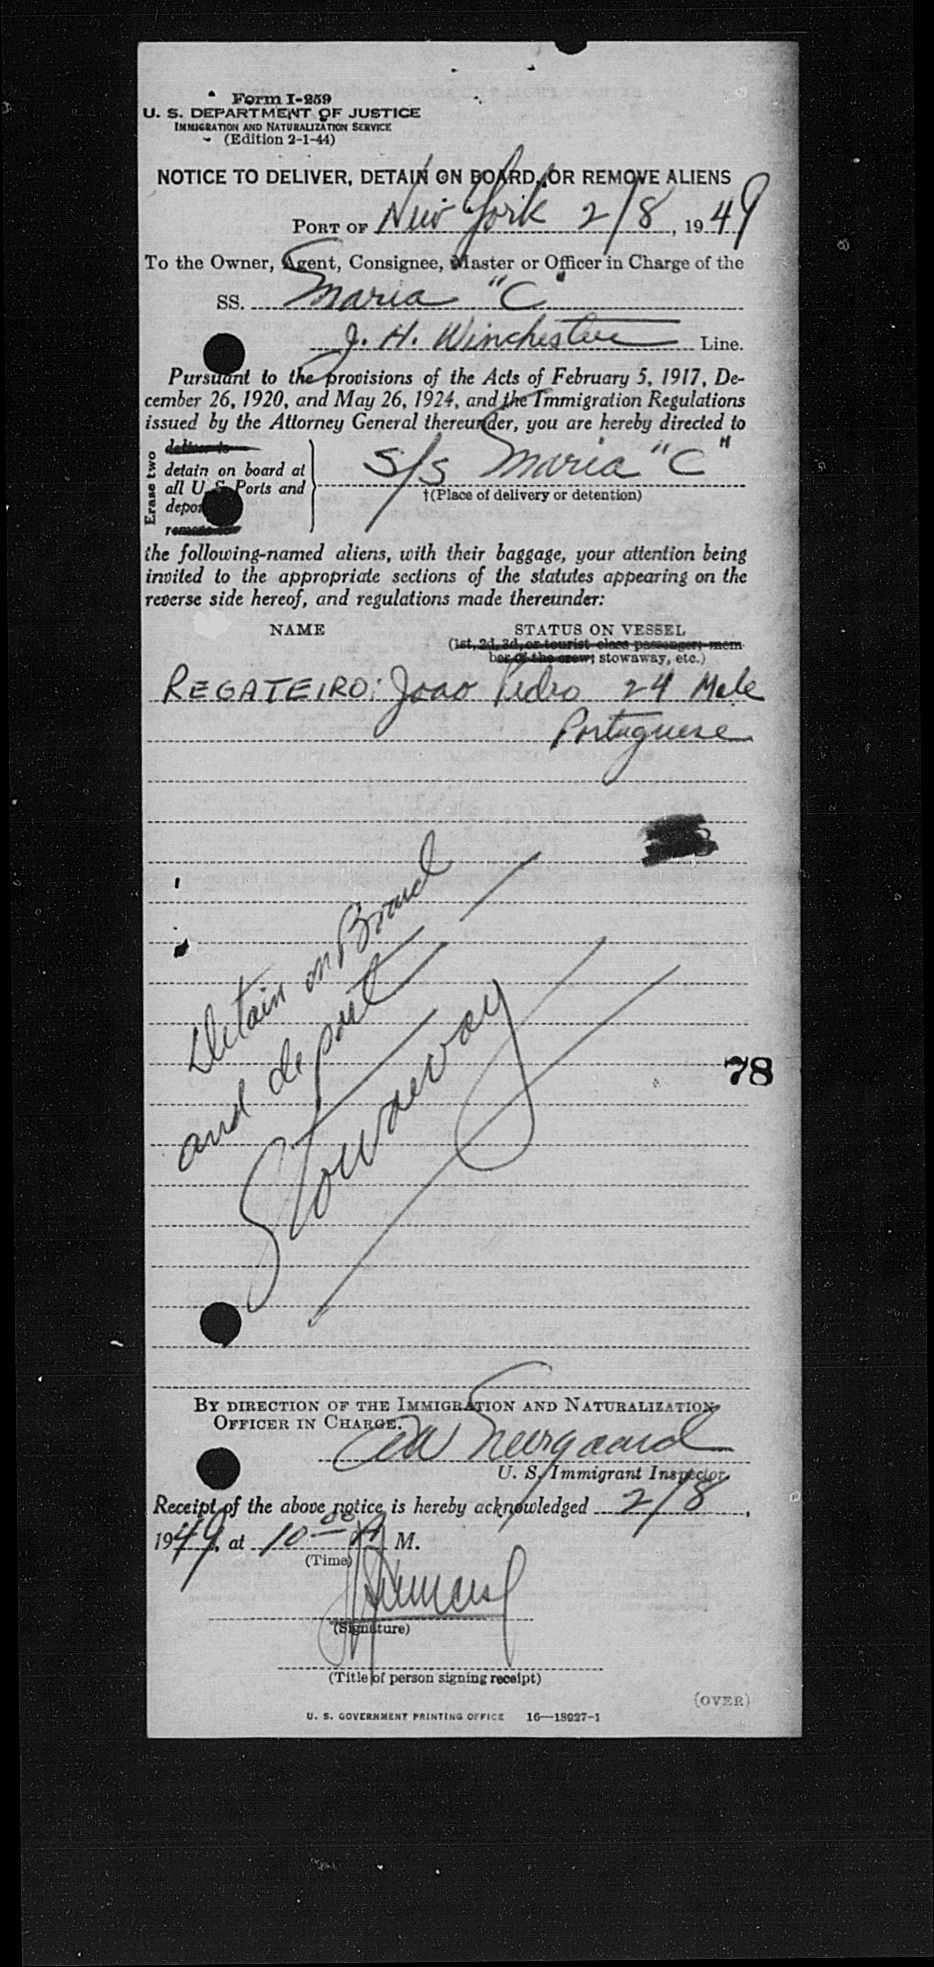 Form I-259
U. S. DEPARTMENT OF JUSTICE
IMMIGRATION AND NATURALIZATION SERVICE
(Edition 2-1-44)
NOTICE TO DELIVER, DETAIN ON BOARD, OR REMOVE ALIENS
PORT OF New York 2/8, 1949
To the Owner, Agent, Consignee, Master or Officer in Charge of the
SS. Maria "C"
J. H. Winchester Line.
Pursuant to the provisions of the Acts of February 5, 1917, De-
cember 26, 1920, and May 26, 1924, and the Immigration Regulations
issued by the Attorney General thereunder, you are hereby directed to
Erase two
deliver to
detain on board at
all U. S. Ports and
depor
remove to
S/S Maria "C"
†(Place of delivery or detention)
the following-named aliens, with their baggage, your attention being
invited to the appropriate sections of the statutes appearing on the
reverse side hereof, and regulations made thereunder:
NAME STATUS ON VESSEL
(1st, 2d, 3d, or tourist class passenger; mem-
ber of the crew; stowaway, etc.)
REGATEIRO: Joao Pedro 24 Male
Portuguese
Detain on Board
and deport
Stowaway
78
BY DIRECTION OF THE IMMIGRATION AND NATURALIZATION
OFFICER IN CHARGE.
U. S. Immigrant Inspector.
Receipt of the above notice is hereby acknowledged 2/8,
1949, at 10 00 A M.
(Time)
(Signature)
(Title of person signing receipt)
(OVER)
U. S. GOVERNMENT PRINTING OFFICE 16—18927-1